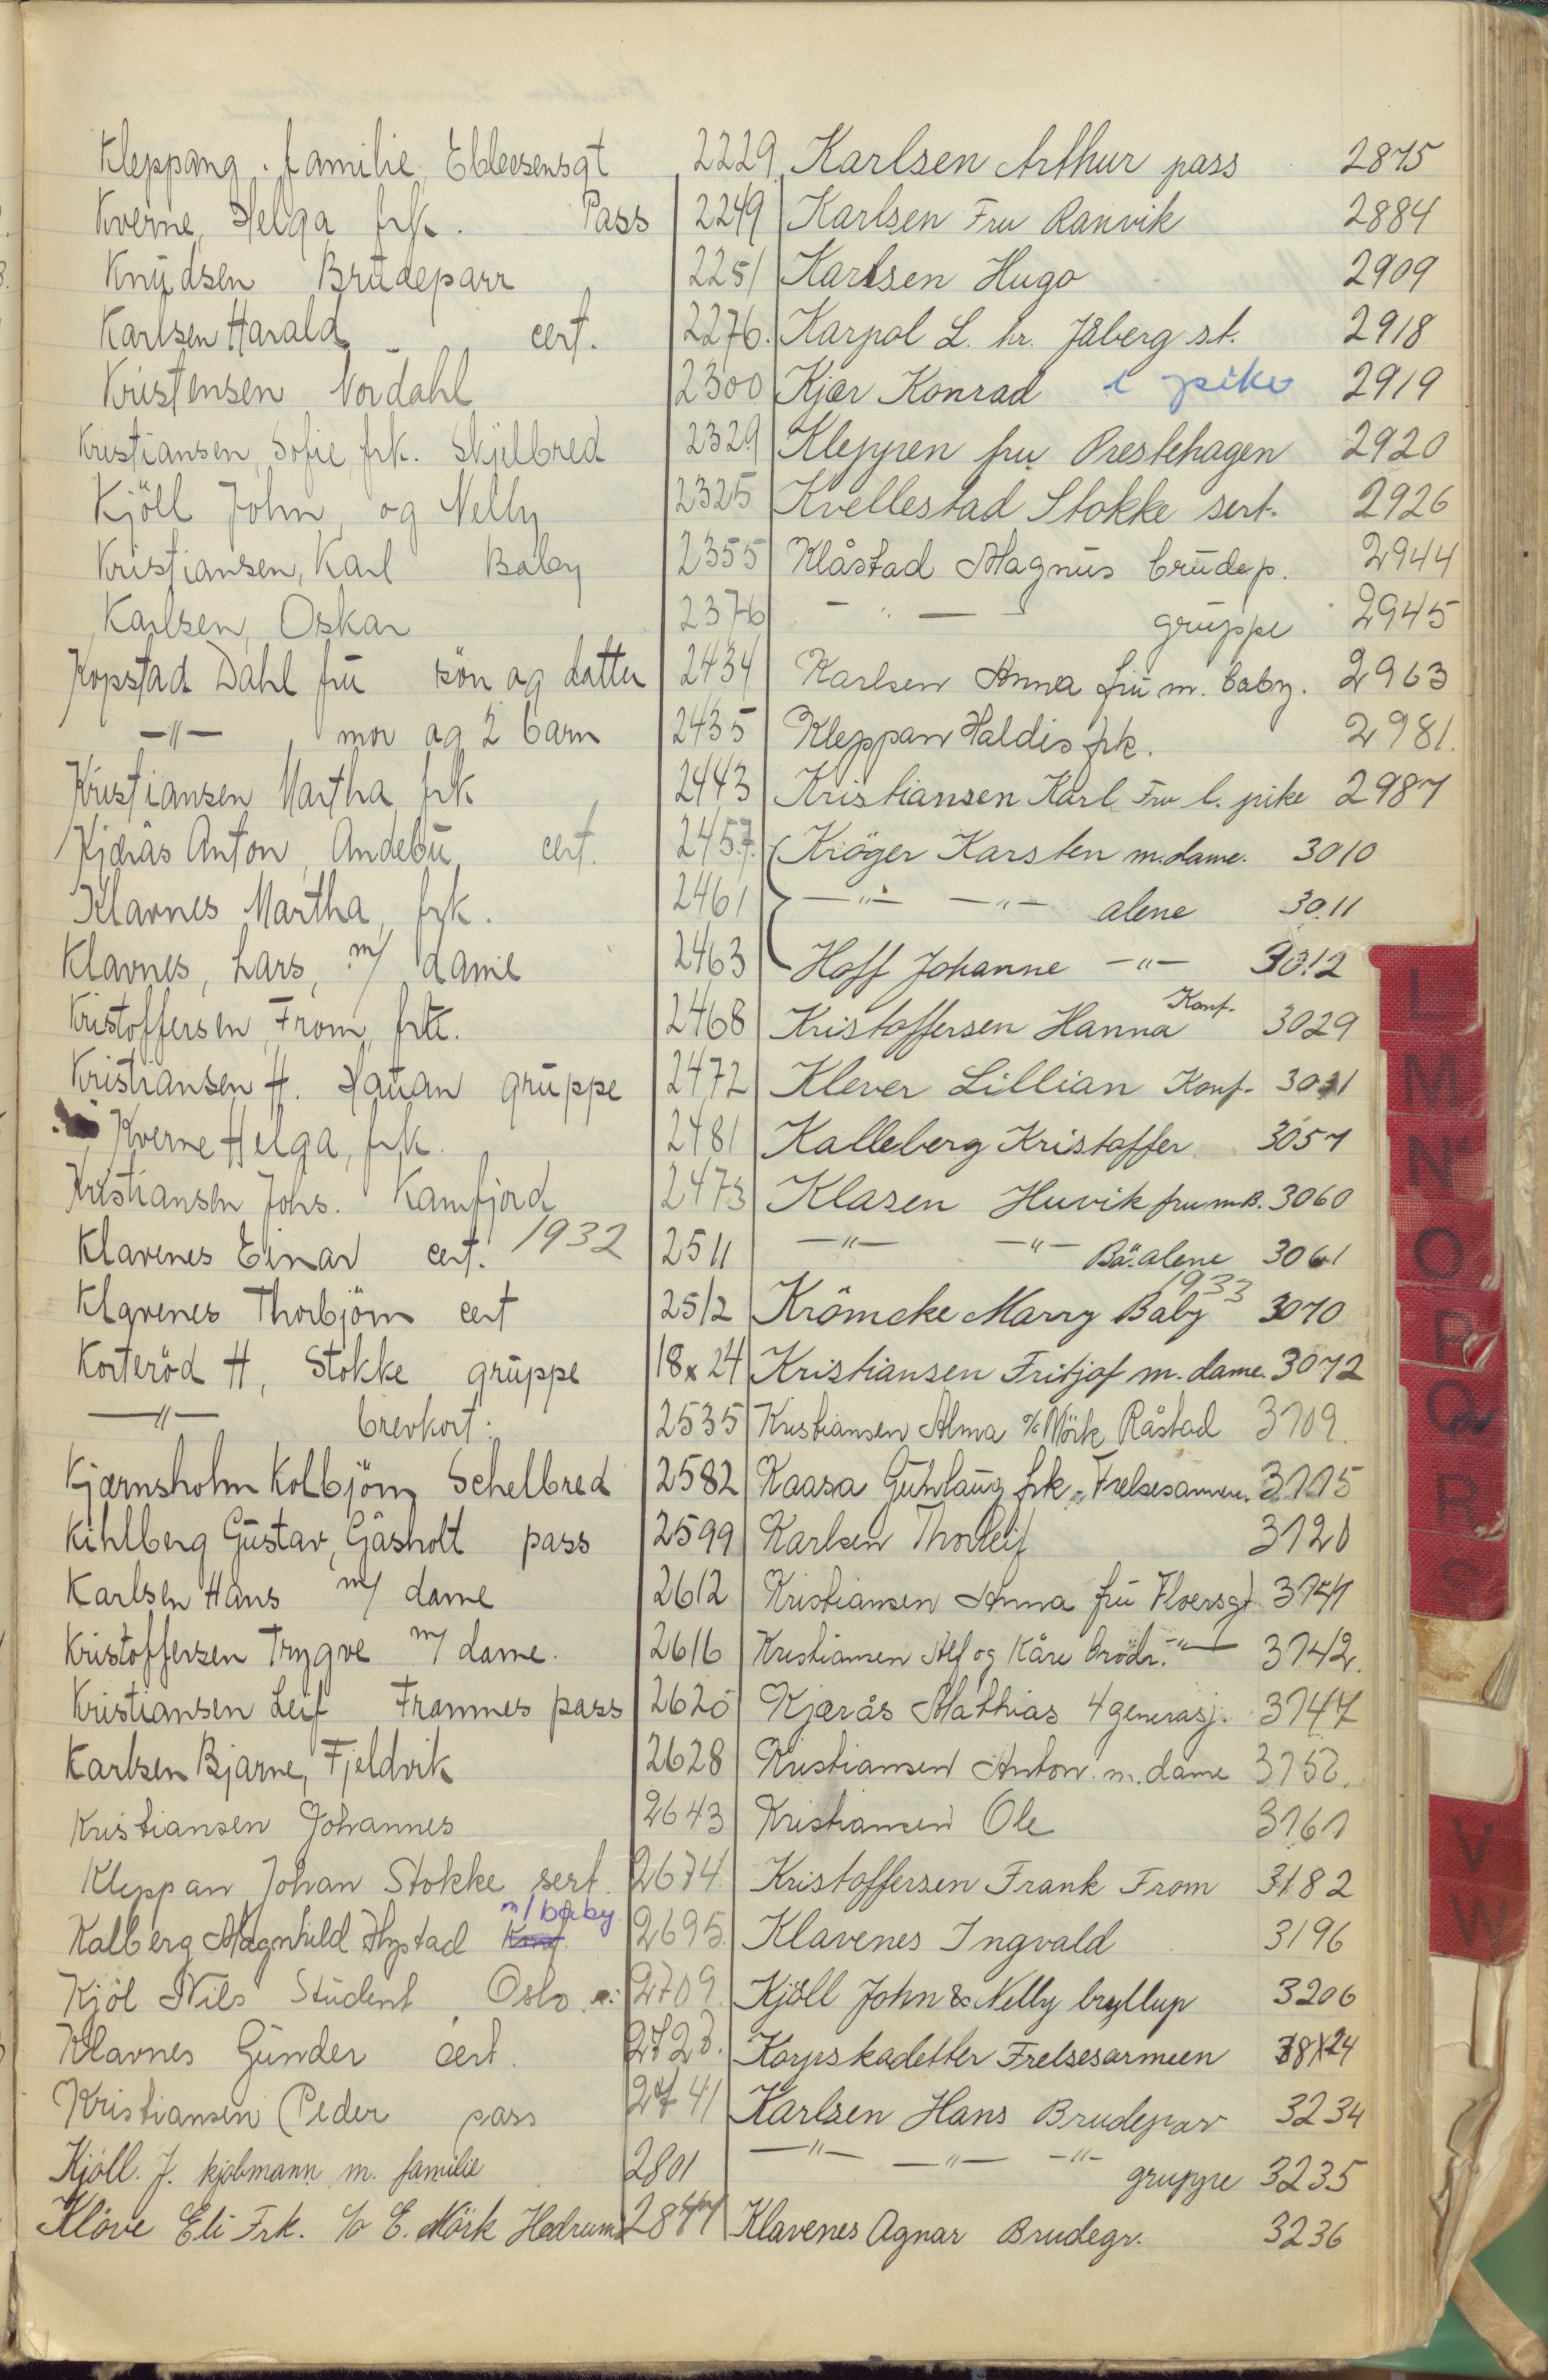 Kleppang. familie,
2229
Kverne, Helga frk. Pass
2249
Knudsen Brudeparr
2251
Karlsen Harald cert.
2276.
Kristensen Nordahl
2300
Kristiansen, Sofie, frk. Skjelbred
2329
Kjöll John, og Nelly
2325
Kristiansen, Karl Baby
2355
Karlsen, Oskar
2376
Kopstad Dahl fru sön og datter
2434
—"— , mor og 2 barn
2435
Kristiansen Martha frk
2443
Kjærås Anton, Andebu, cert.
2457.
Klavnes Martha, frk.
2461
Klavnes, Lars, m/ dame
2463
Kristoffersen, From, frk.
2468
Kristiansen H. Hauan gruppe
2472
Kverne Helga, frk.
2481
Kristiansen Johs. Kamfjord
2473
Klavenes Einar cert. 1932
2511
Klavenes Thorbjörn cert
2512
Korteröd H, Stokke gruppe
18x24
—"— brevkort:
2535
Kjærnsholm Kolbjörn Schelbred
2582
Kihlberg Gustav, Gåsholt pass
2599
Karlsen Hans m/ dame
2612
Kristoffersen Trygve m/ dame.
2616
Kristiansen Leif Framnes pass
2620
Karlsen Bjarne, Fjeldvik
2628
Kristiansen Johannes
2643
Kleppan Johan Stokke sert.
2674.
Kalberg Magnhild Hystad Konf. m/baby
2695.
Kjöl Nils Student Oslo
2709
Klavnes Gunder cert.
2723.
Kristiansen Peder pass
2741
Kjöll. J. kjöbmann m. familie
2801
Klöve Eli Frk. c/o E. Mörk Hedrum
Karlsen Arthur pass 2875
Karlsen Fru Ranvik 2884
Karlsen Hugo 2909
Karpol L. hr. Jåberg st. 2918
Kjær Konrad l pike 2919
Kleppen fru Prestehagen 2920
Kvellestad Stokke sert. 2926
Klåstad Magnus brudep. 2944
— " — gruppe 2945
Karlsen Anna fru m. baby. 2963
Kleppan Haldis frk. 2981.
Kristiansen Karl Fru l. pike 2987
Kröger Karsten m.dame. 3010
—"— —"— alene 3011
Hoff Johanne —"— 3012
Kristoffersen Hanna Konf. 3029
Klever Lillian Konf. 3031
Kalleberg Kristoffer 3057
Klasen Huvik fru m B. 3060
—"— —"— Ba. alene 3061
Krömcke Marry Baby 1933 3070
Kristiansen Fritjof m. dame. 3072
Kristiansen Alma c/o Mörk Råstad 3109.
Kaasa Gunlaug frk. Frelsesarmeen. 3115
Karlsen Thorleif 3120
Kristiansen Anna fru 3141
Kristiansen Alf og Kåre Brödr. —"— 3142.
Kjærås Mathias 4 generasj. 3147
Kristiansen Anton m. dame 3152.
Kristiansen Ole 3161
Kristoffersen Frank From 3182
Klavenes Ingvald 3196
Kjöll John & Nelly bryllup 3206
Korpskadetter Frelsesarmeen 18x24
Karlsen Hans Brudepar 3234
—"— —"— —"— gruppe 3235
Klavenes Agnar Brudegr. 3236
L
M
N
O
P
Q
R
S
V
W